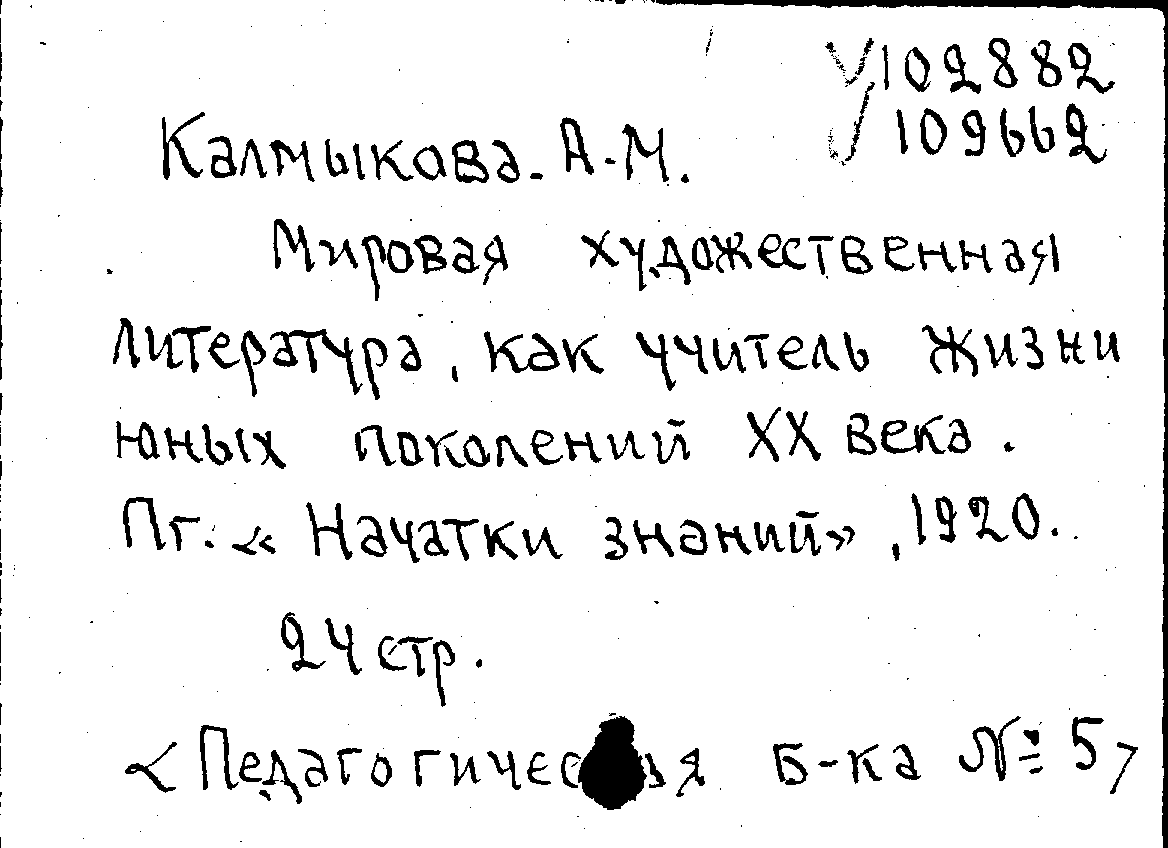 √102882
√109662
Калмыкова. А. М.
Мировая художественная
литература, как учитель жизни
юных поколений XX века.
Пг. «Начатки знаний», 1920.
24 стр.
<Педагогическая б-ка № 5>